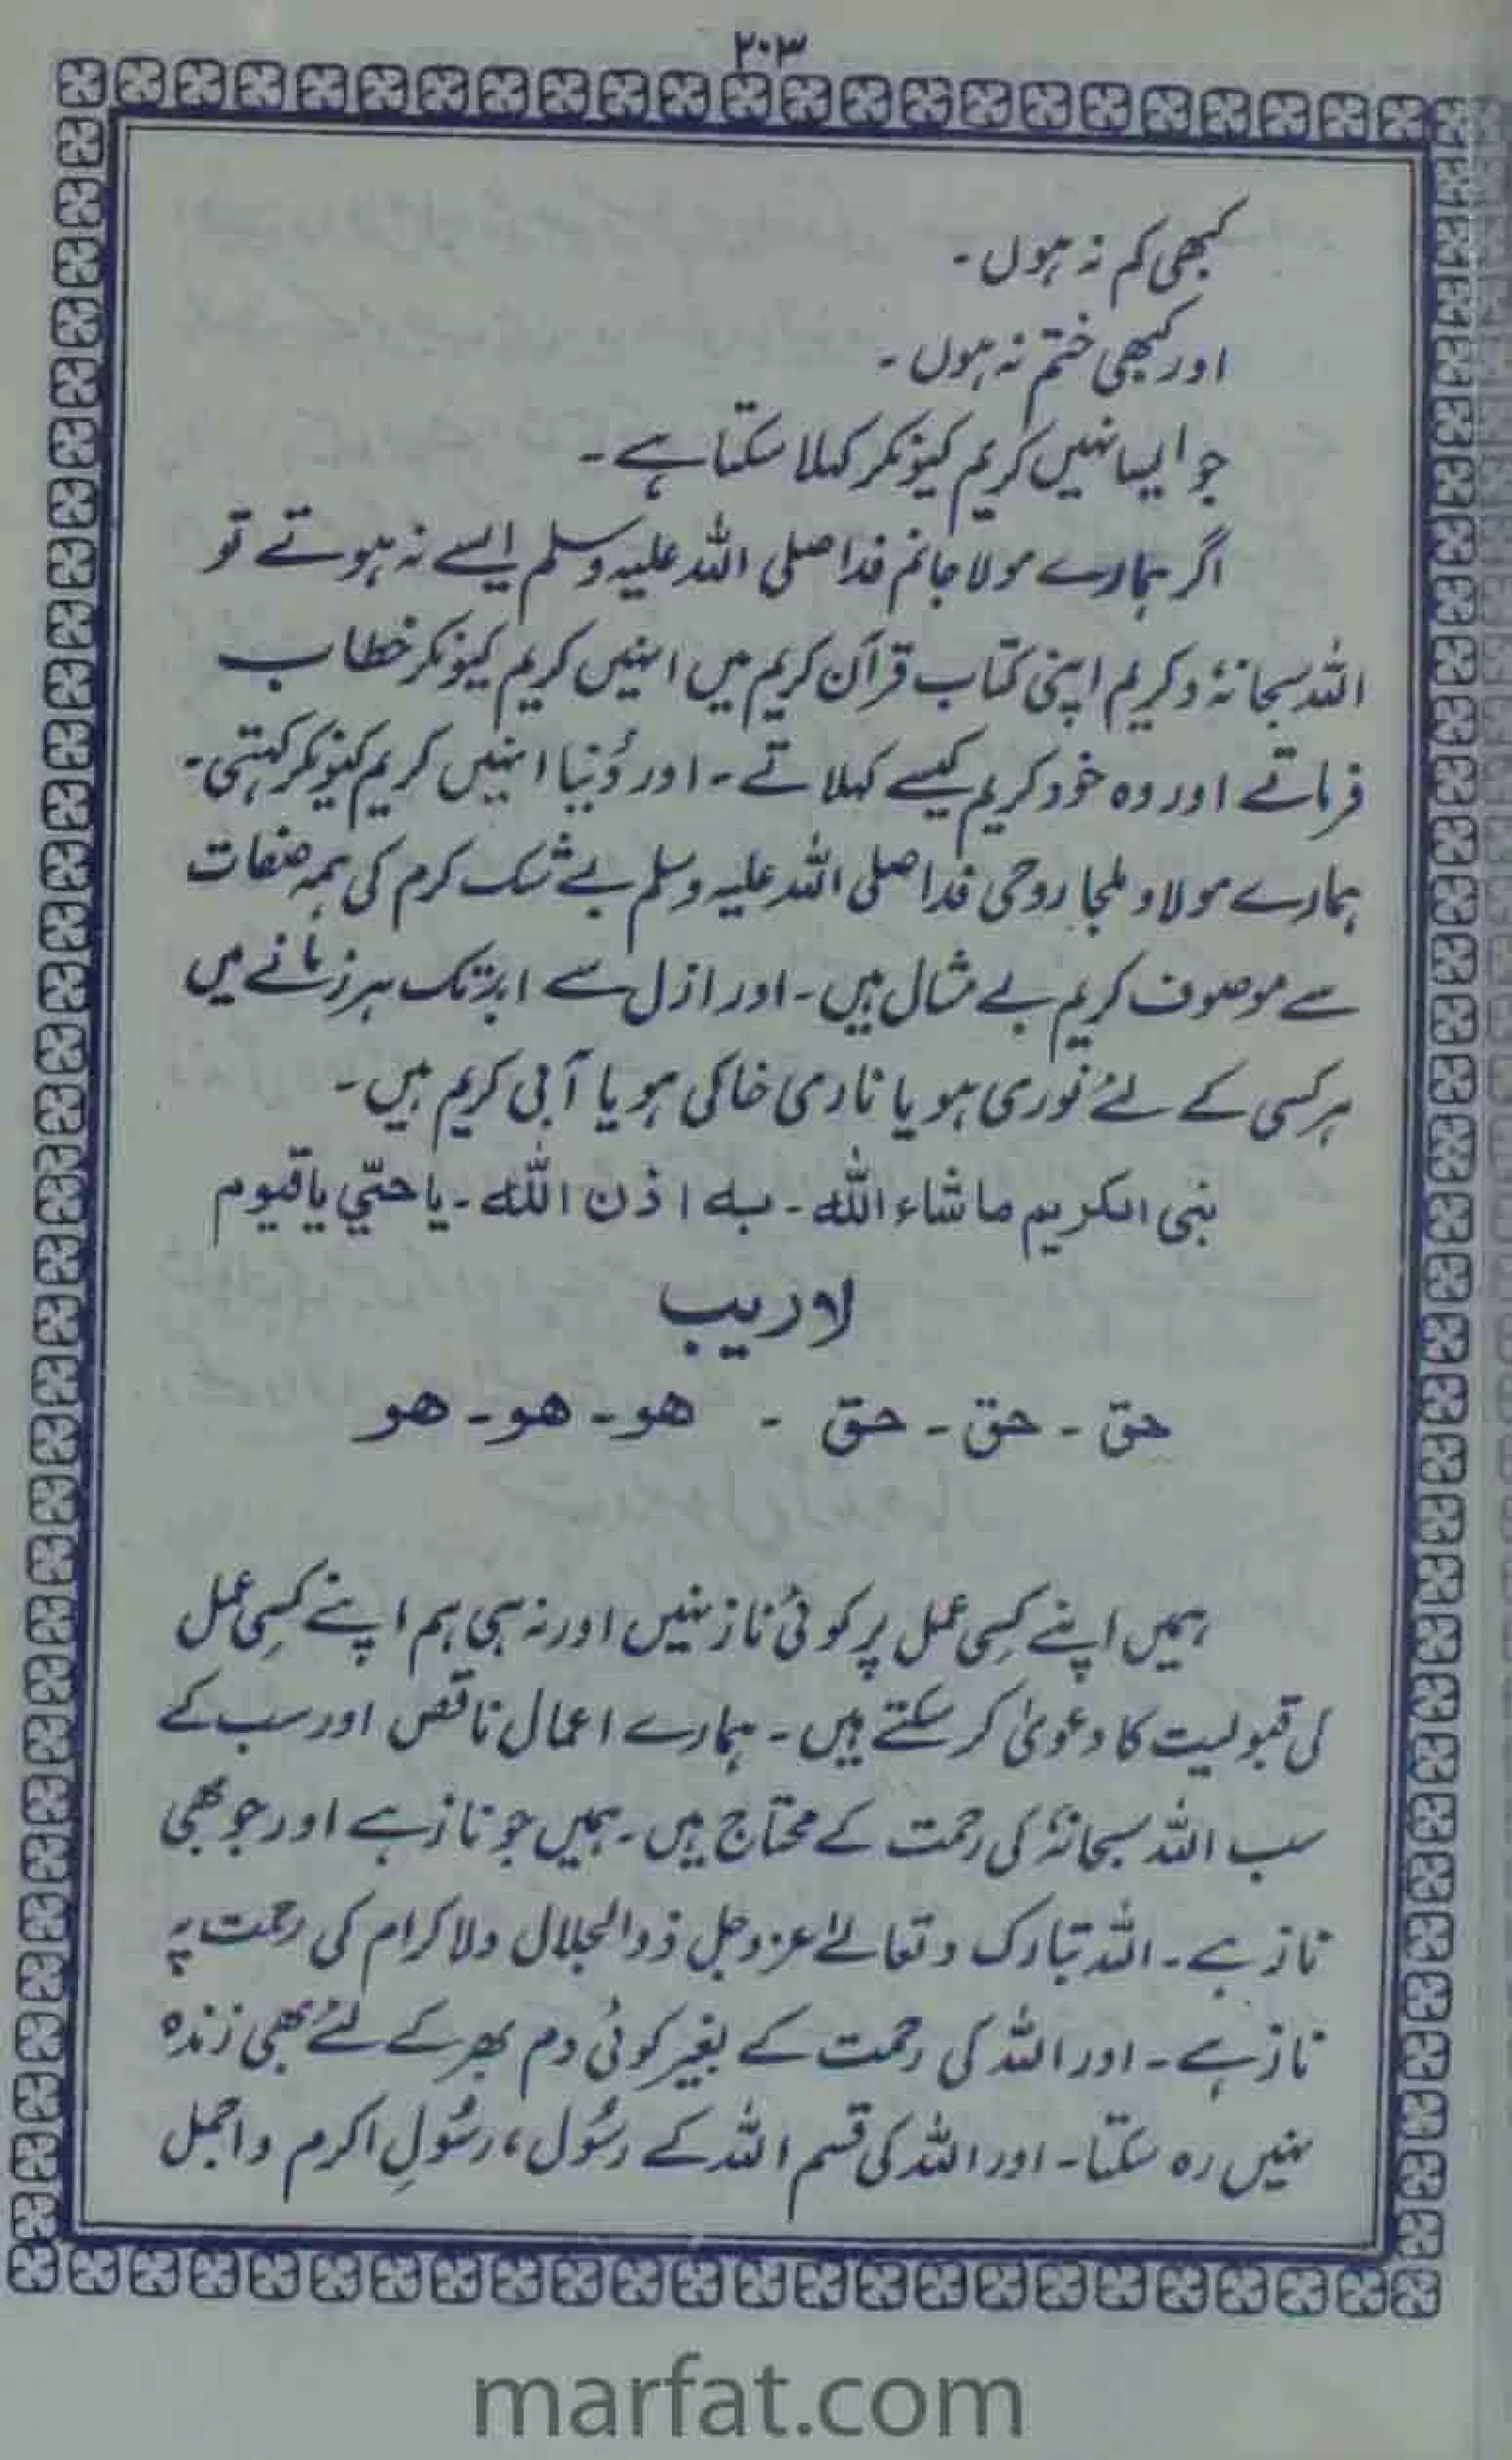 ۲۰۳
کبھی کم نہ ہوں ۔
اور کبھی ختم نہ ہوں ۔
جو ایسا نہیں کریم کیونکر کہلا سکتا ہے ۔
اگر ہمارے مولا جانم فدا صلی اللہ علیہ وسلم ایسے نہ ہوتے تو
اللہ سبحانہٗ و کریم اپنی کتاب قرآن کریم میں انہیں کریم کیونکر خطاب
فرماتے اور وہ خود کریم کیسے کہلاتے ۔ اور دُنیا انہیں کریم کیونکر کہتی ۔
ہمارے مولا و ملجا روحی فدا صلی اللہ علیہ وسلم بے شک کرم کی ہمہ صفات
سے موصوف کریم بے مثال ہیں ۔ اور ازل سے ابد تک ہر زمانے میں
ہر کسی کے لئے نوری ہو یا ناری خاکی ہو یا آبی کریم ہیں ۔
نبی الکریم ماشاء اللہ ۔ بہ اذن اللہ ۔ یا حیّی یا قیوم
لاریب
حق ۔ حق ۔ حق ۔ ھو ۔ ھو ۔ ھو
ہمیں اپنے کسِی عمل پر کوئی ناز نہیں اور نہ ہی ہم اپنے کسِی عمل
کی قبولیت کا دعویٰ کر سکتے ہیں ۔ ہمارے اعمال ناقص اور سب کے
سب اللہ سبحانہٗ کی رحمت کے محتاج ہیں ۔ ہمیں جو ناز ہے اور جو بھی
ناز ہے ۔ اللہ تبارک و تعالےٰ عزوجل ذوالجلال ولاکرام کی رحمت پہ
ناز ہے ۔ اور اللہ کی رحمت کے بغیر کوئی دم بھر کے لئے بھی زندہ
نہیں رہ سکتا ۔ اور اللہ کی قسم اللہ کے رسُول ، رسُولِ اکرم و اجمل
marfat.com